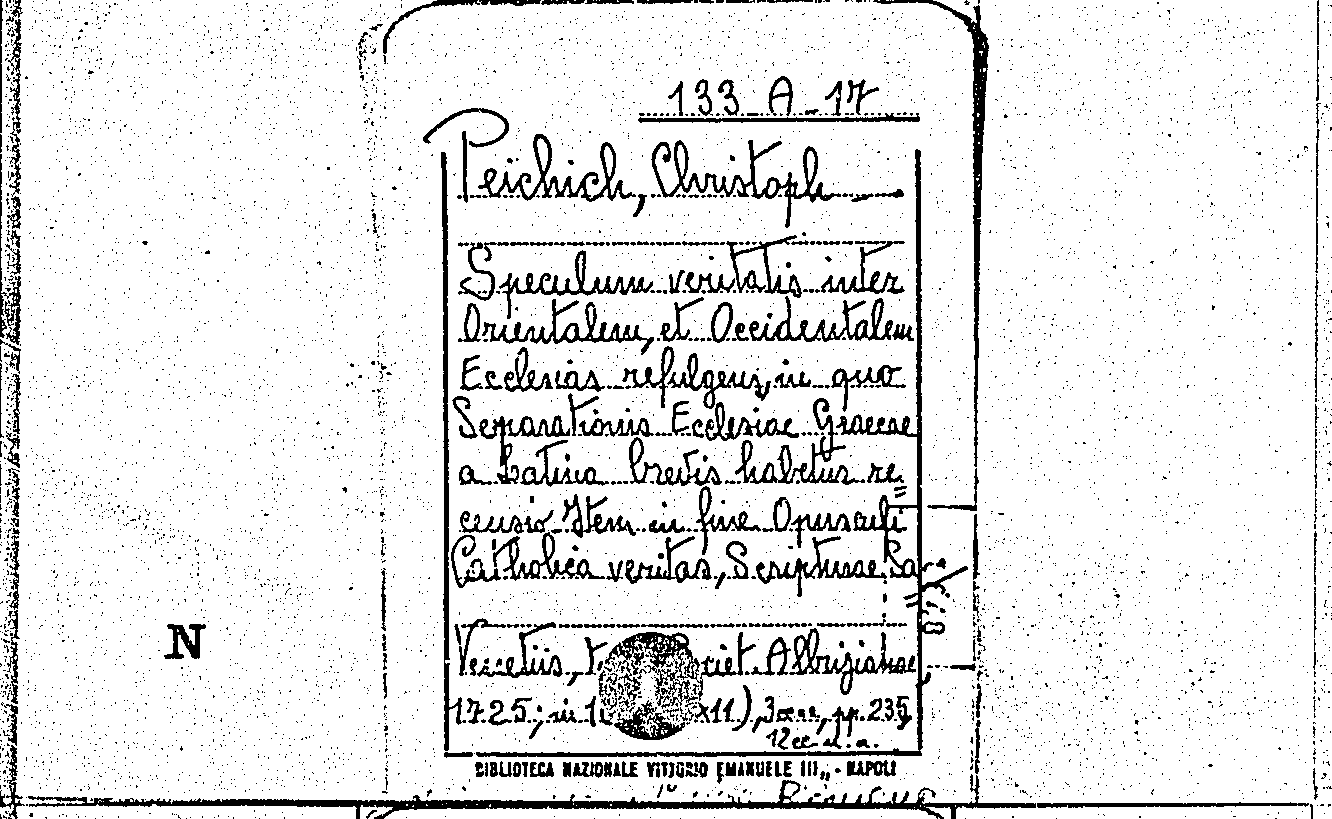 133 A-17
Peichich, Christoph
Speculum veritatis inter
Orientalem, et Occidentalem
Ecclesias refulgens, in quo
Separationis Ecclesiae Graecae
a Latina brevis habetur re=
censio. Item in fine Opusculi
Catholica veritas, Scripturae Sa=
N
Venetiis, Albrizianae,
1725; in x11), 3cc nn, pp. 235,
12cc n.n.
BIBLIOTECA NAZIONALE VITTORIO EMANUELE III„ - NAPOLI